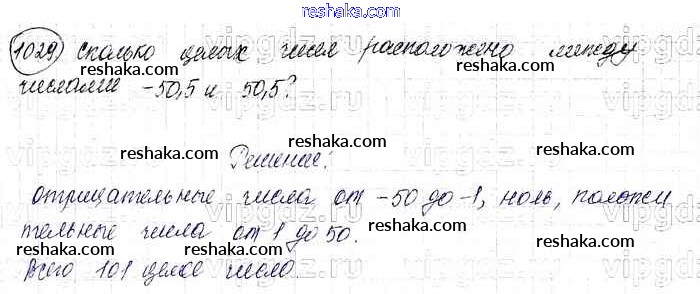 reshaka.com
1029) Сколько целых чисел расположено между
reshaka.com reshaka.com
числами -50,5 и 50,5?
reshaka.com
reshaka.com
Решение:
reshaka.com reshaka.com
отрицательные числа от -50 до -1, ноль, положи
reshaka.com
тельные числа от 1 до 50.
reshaka.com reshaka.com
Всего 101 целое число.
reshaka.com